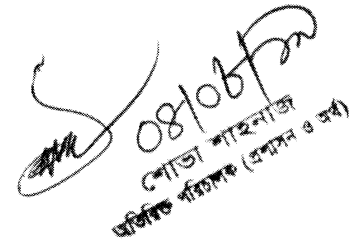 ০৪/০৬/২০
শোভা শাহনাজ
অতিরিক্ত পরিচালক (প্রশাসন ও অর্থ)